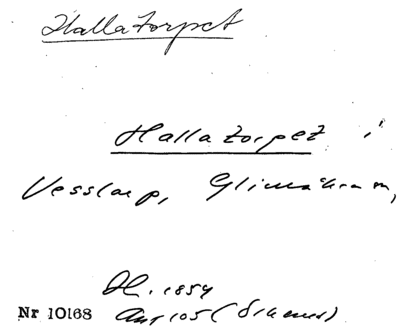 Hallatorpet
Hallatorpet i
Vesslarp, Glimåkra sn,
1854
Nr 10168 105 (Skånes)